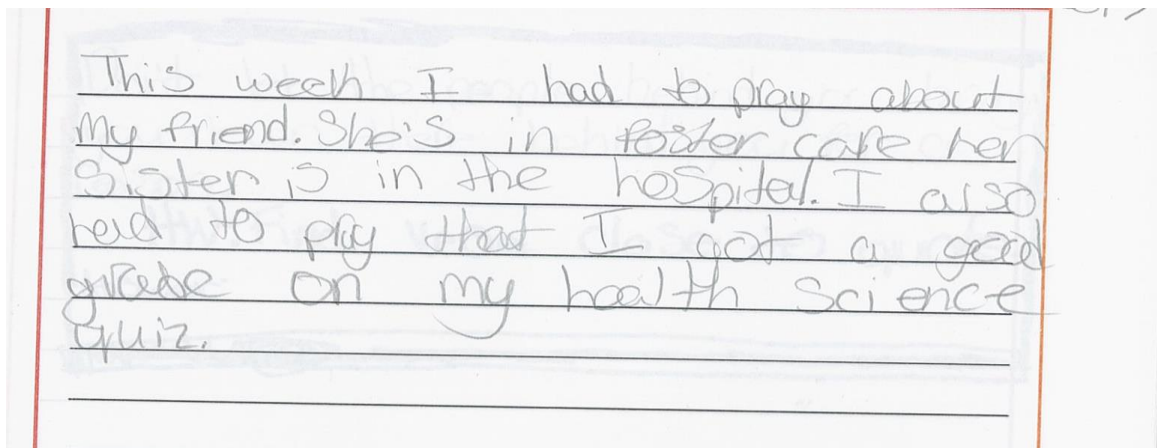 This week I had to pray about
my friend. She's in foster care her
Sister is in the hospital. I also
had to pray that I got a good
grade on my health Science
quiz.